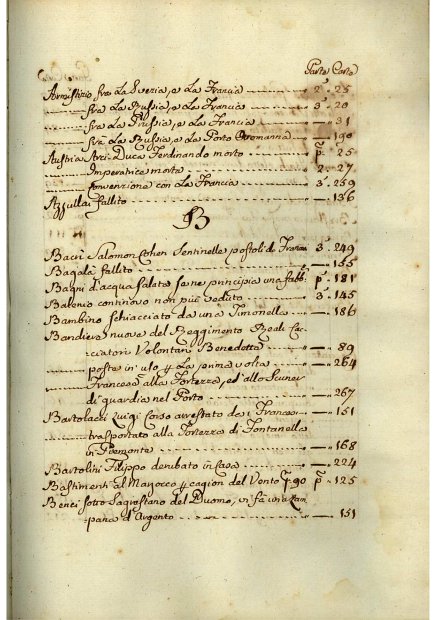 Parte Carte
Armistizio fra La Svezia, e La Francia 2ª 25
fra La Russia, e La Francia 3ª 20
fra La Prussia, e La Francia 31
fra La Russia, e La Porta Ottomanna 190
Austria Arci-Duca Ferdinando morto Pª 25
Imperatrice morta 2ª 27
Convenzione con La Francia 3ª 259
Azzullai fallito 136
B
Bacri Salomon Cohen Sentinelle postoli di 3ª 249
Bagalà fallito 155
Bagni d'acqua salata se ne principia una fabb. Pª 181
Baleno continovo non più veduto 3ª 145
Bambino schiacciato da una Timonella 186
Bandiere nuove del Reggimento Reali Cac-
ciatori Volontari Benedetta 89
poste in uso p. La prima volta 264
Francese alla Fortezza, ed allo
di guardia nel Porto 267
Bartolacci Luigi Corso arrestato da i Francesi 151
trasportato alla Fortezza di Fontanella
in Piemonte 168
Bartolini Filippo derubato in Casa 224
Bastimenti al Maroco p. cagion del Vento Pª 125
Benci sotto Sagrestano del Duomo, vi fà una Lam-
pana d'Argento 151